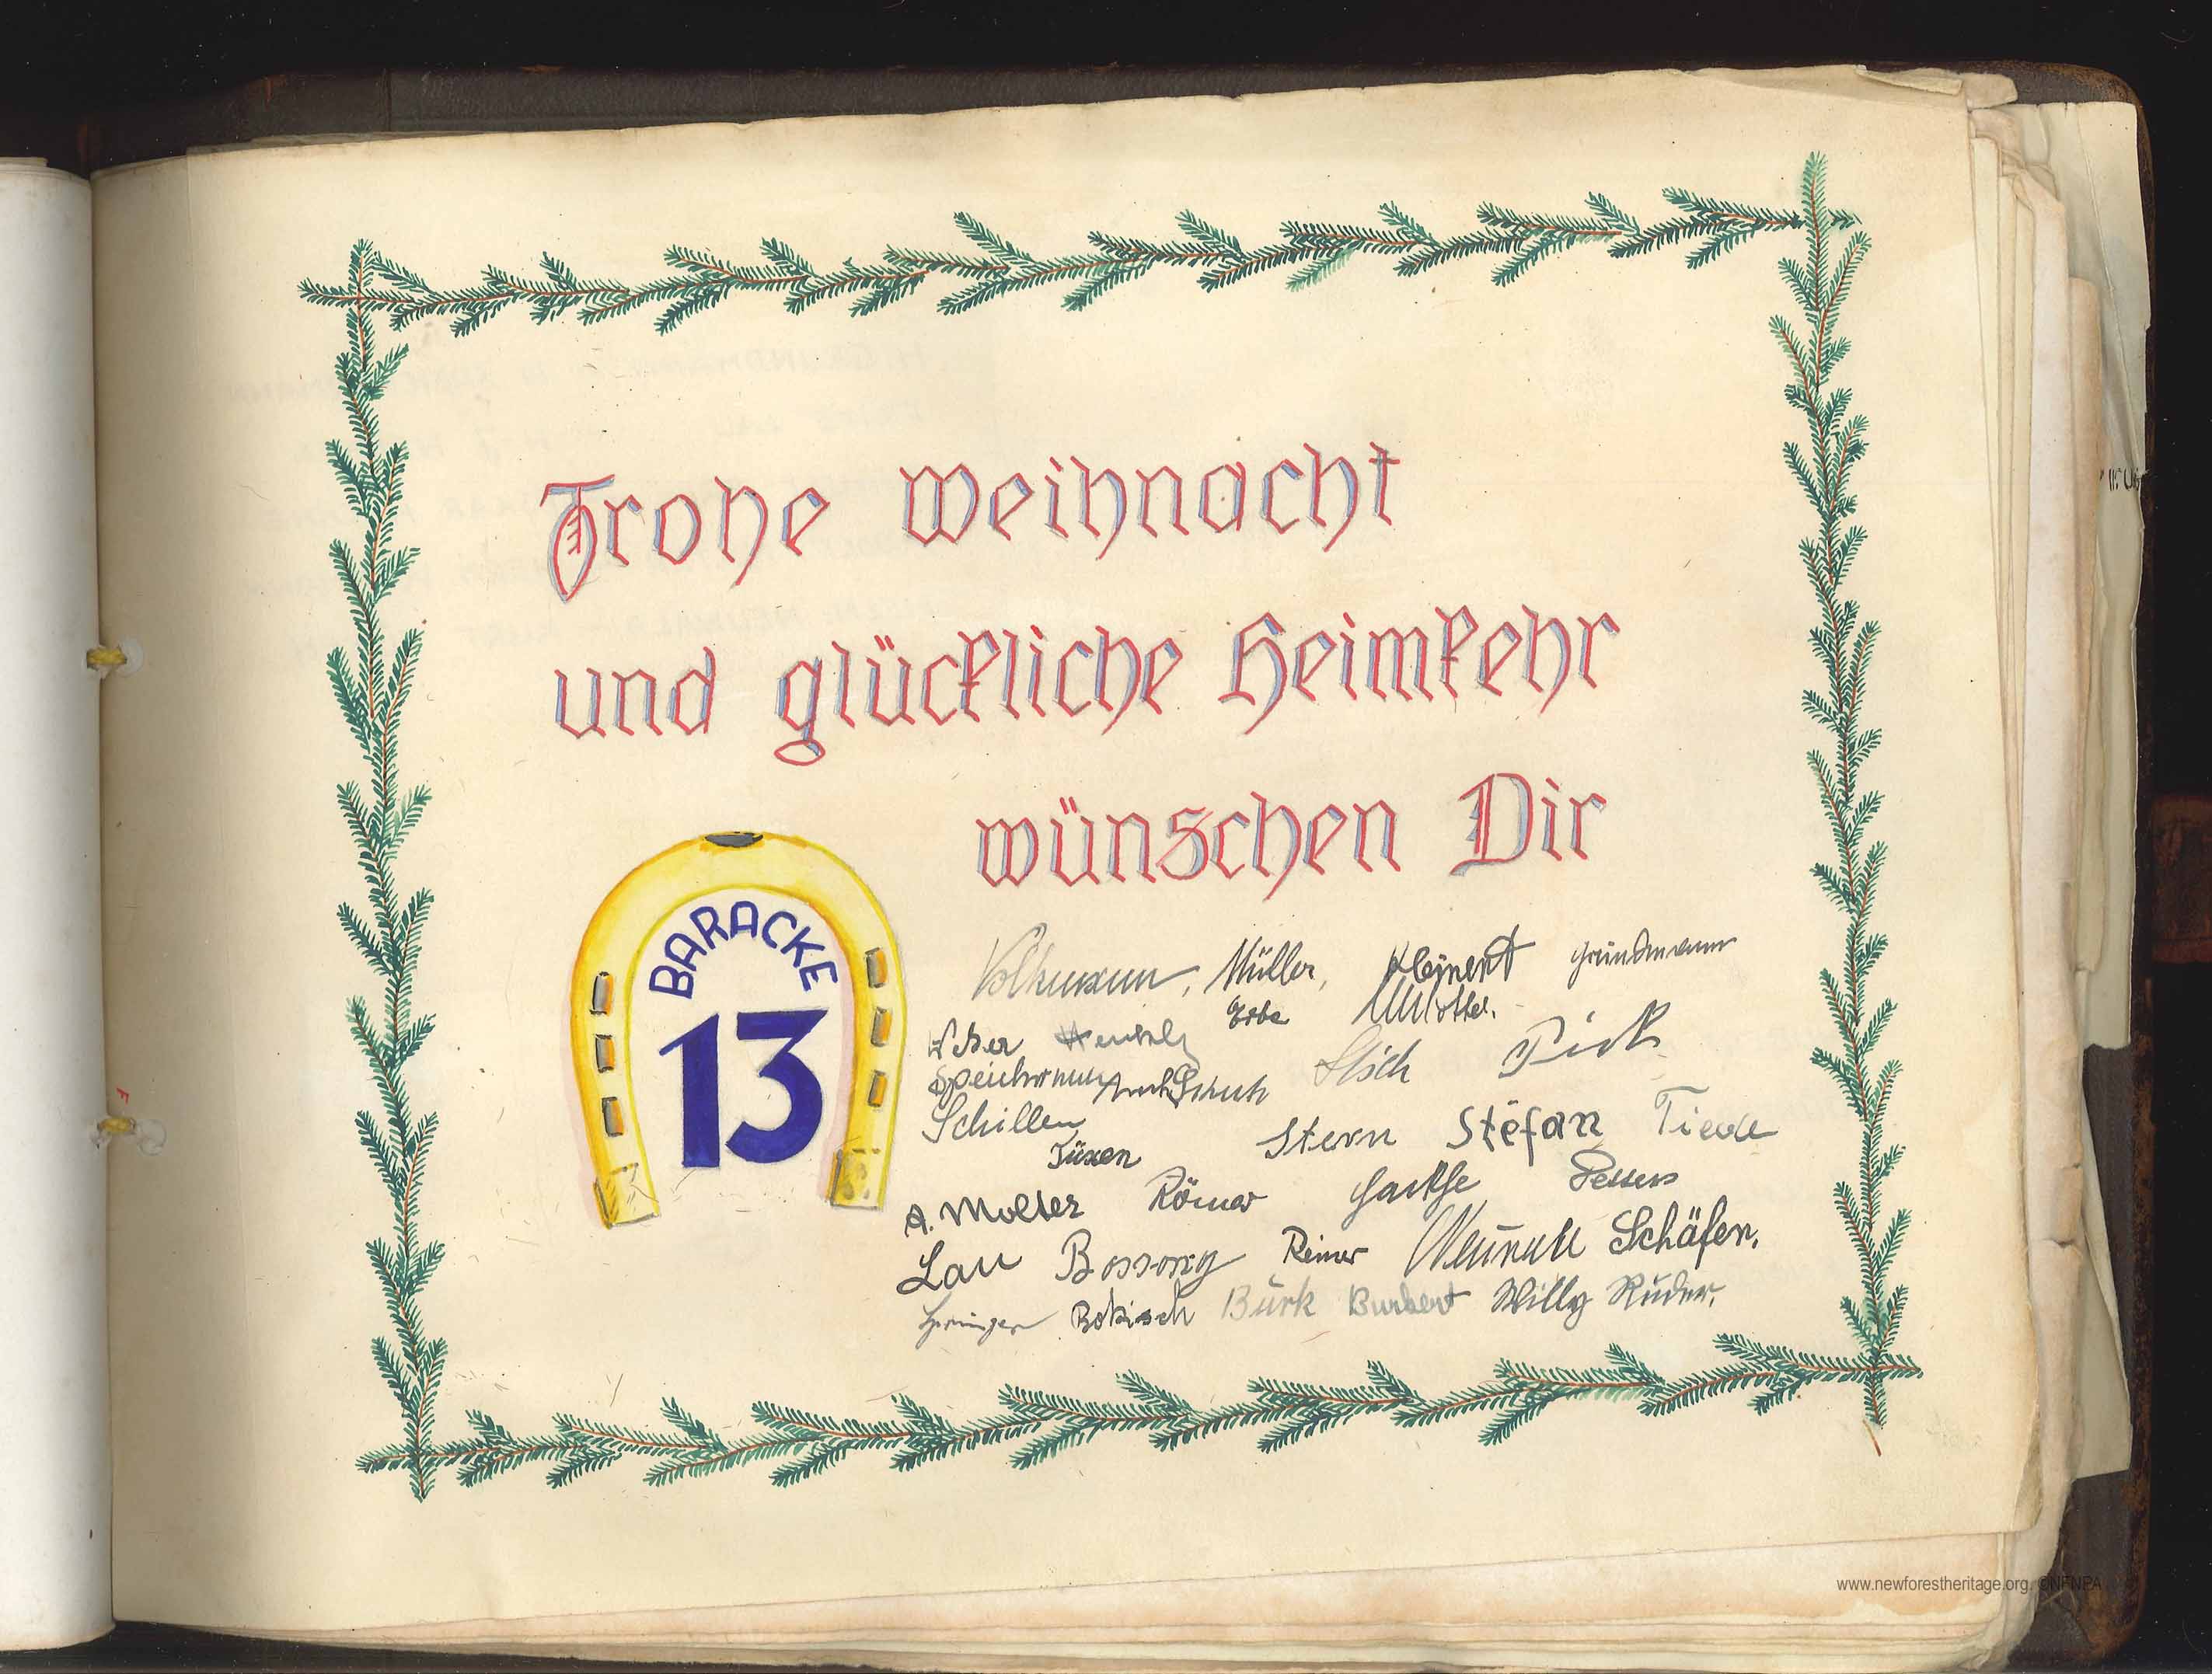 Frohe Weihnacht
und glückliche Heimkehr
wünschen Dir
BARACKE
13
Volkmann, Müller, Kleinert Grundmann
Erbe
Stich Pick
Schiller
Stern Stefan Tiede
Tüxen
A. Molter Römer Peters
Lau Bossong Reiner Schäfer.
Springer Bokisch Bürk Burbert Willy Ruder.
www.newforestheritage.org. ©NFNPA